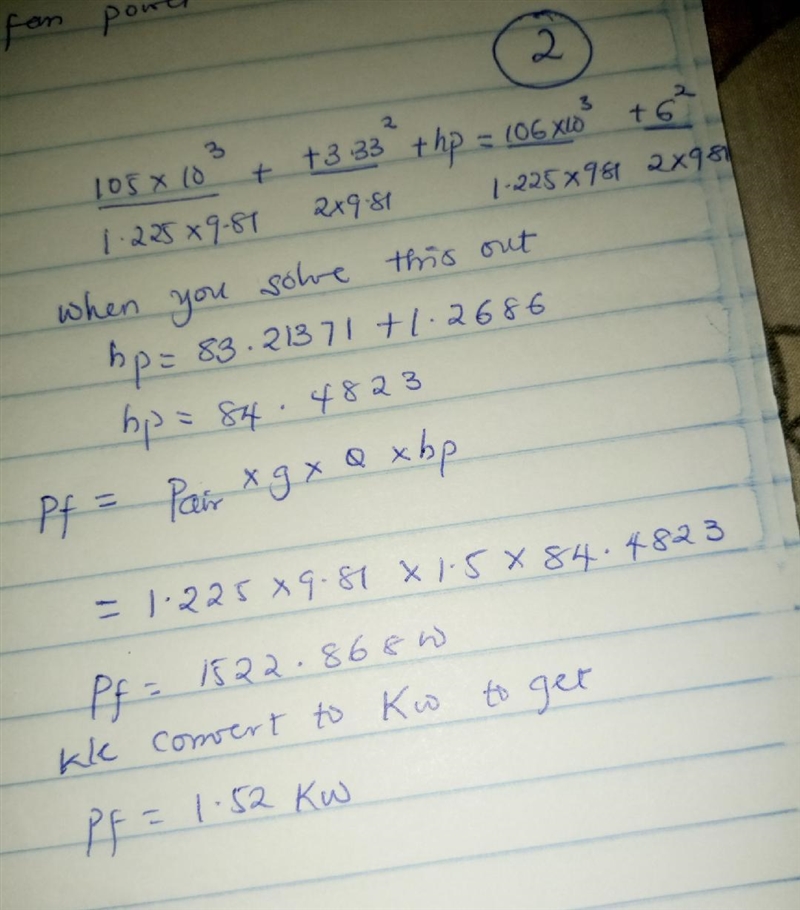 fan power
2
105 × 10³ + +3.33² + hp = 106 ×10³ +6²
1.225 ×9.81 2×9.81 1.225 ×981 2×981
when you solve this out
hp = 83.21371 +1.2686
hp = 84.4823
Pf = Pair ×g× Q ×hp
= 1.225 ×9.81 ×1.5 × 84.4823
Pf = 1522.868 W
convert to Kw to get
Pf = 1.52 Kw